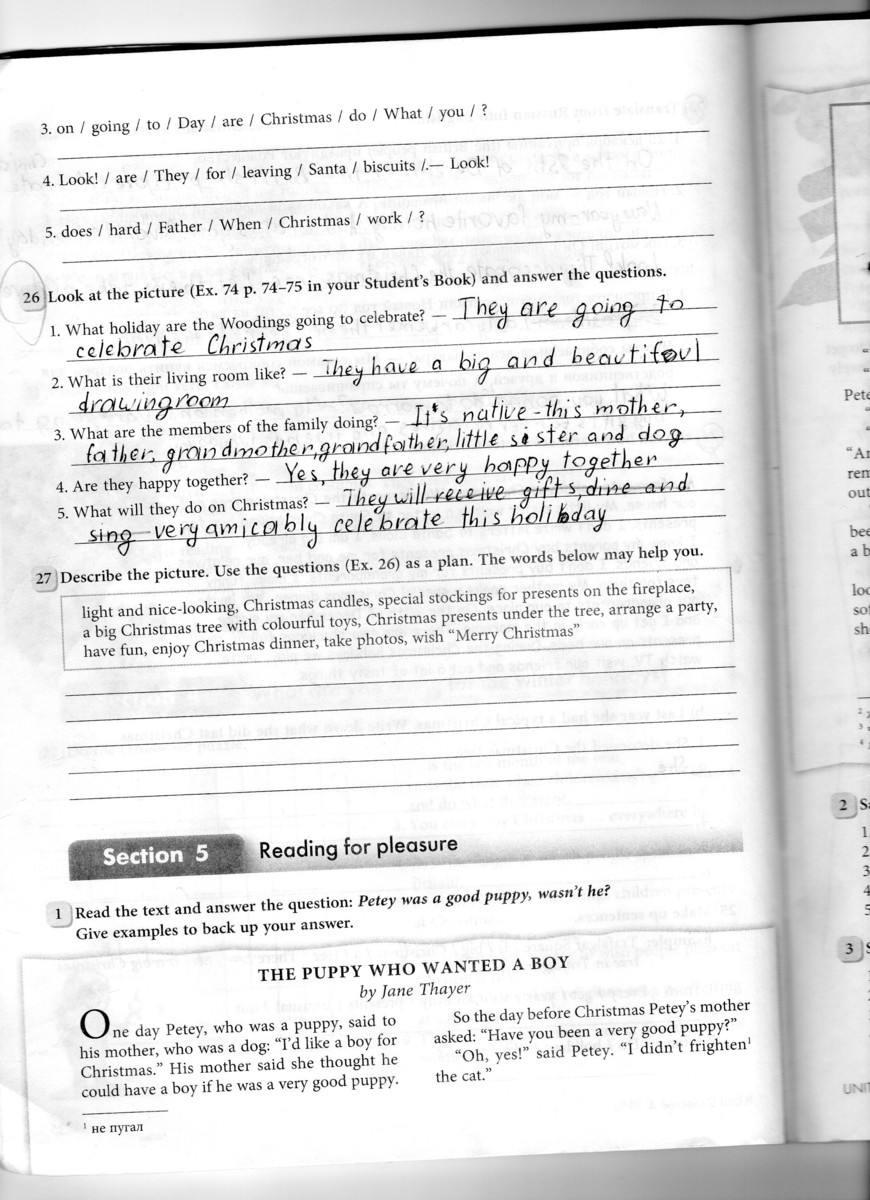 3. on / going / to / Day / are / Christmas / do / What / you / ?
4. Look! / are / They / for / leaving / Santa / biscuits /.— Look!
5. does / hard / Father / When / Christmas / work / ?
26 Look at the picture (Ex. 74 p. 74–75 in your Student's Book) and answer the questions.
1. What holiday are the Woodings going to celebrate? — They are going to
celebrate Christmas
2. What is their living room like? — They have a big and beautifoul
drawingroom
3. What are the members of the family doing? It's native-this mother,
father, grandmother, grandfather, little sister and dog
4. Are they happy together? — Yes, they are very happy together
5. What will they do on Christmas? — They will receive gifts, dine and
sing very amicably celebrate this holibday
27 Describe the picture. Use the questions (Ex. 26) as a plan. The words below may help you.
light and nice-looking, Christmas candles, special stockings for presents on the fireplace,
a big Christmas tree with colourful toys, Christmas presents under the tree, arrange a party,
have fun, enjoy Christmas dinner, take photos, wish “Merry Christmas”
Section 5 Reading for pleasure
1 Read the text and answer the question: Petey was a good puppy, wasn't he?
Give examples to back up your answer.
THE PUPPY WHO WANTED A BOY
by Jane Thayer
One day Petey, who was a puppy, said to
his mother, who was a dog: “I'd like a boy for
Christmas.” His mother said she thought he
could have a boy if he was a very good puppy.
So the day before Christmas Petey's mother
asked: “Have you been a very good puppy?”
“Oh, yes!” said Petey. “I didn't frighten¹
the cat.”
¹ не пугал
Pete
out
bee
a b
loo
sh
2
3
4
2 S
1
2
3
4
5
3
UNI